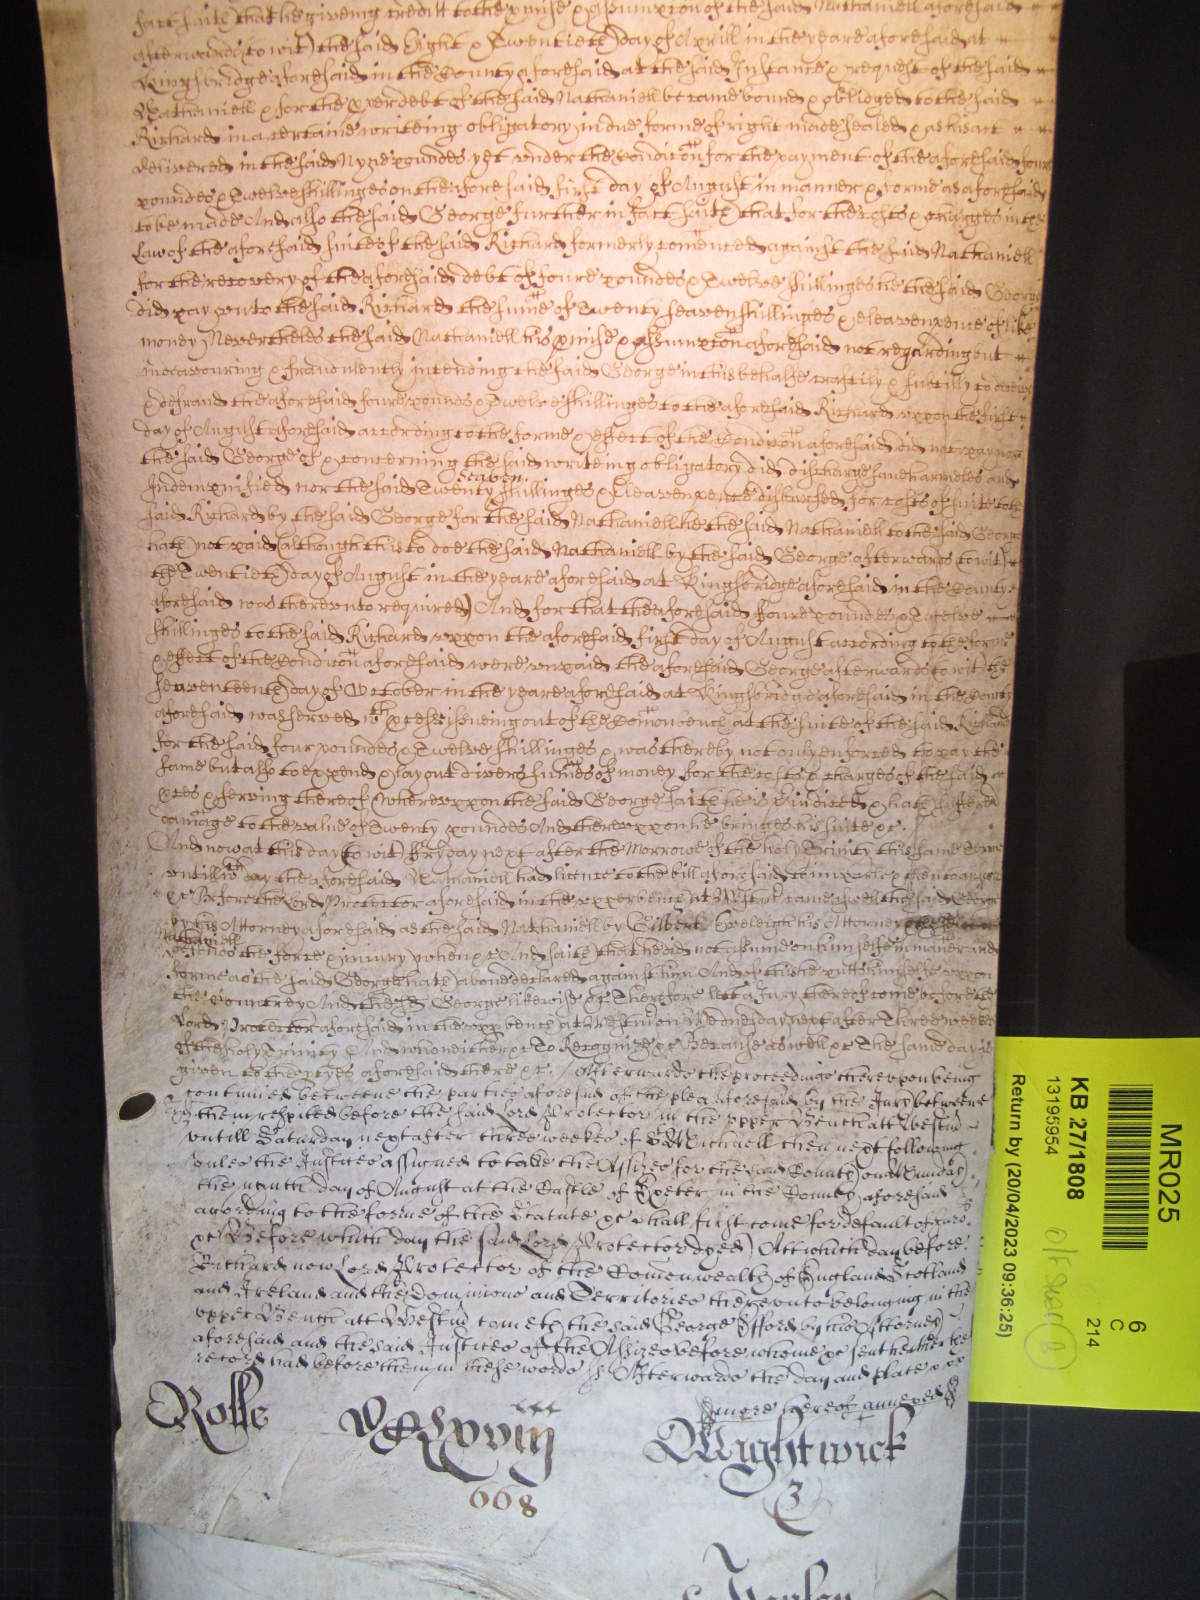 fact saith that he giveing credit to the p̱mise & assumpc̄on of the said Nathaniell aforesaid
afterwards (to wit) the said Eight & Twentieth day of Aprill in the yeare aforesaid at
Kingsbridge aforesaid in the County aforesaid at the said Instance & request of the said
Nathaniell & for the p̱per debt of the said Nathaniell became bound & obliged to the said
Richard in a certaine writeing obligatory in due forme of right made sealed & as his act
delivered in the said Nyne poundes yet under the Condic̄on for the payment of the aforesaid foure
poundes & Twelve shillinges on the aforesaid first day of August in manner & forme as aforesaid
to be made And also the said George further in fact saith that for the costs & charges in the
Law of the aforesaid suite of the said Richard formerly com̄enced against the said Nathaniell
for the recovery of the aforesaid debt of foure poundes & Twelve shillinges he the said George
did pay unto the said Richard the sum̄e of Twenty seaven shillinges & eleaven pence of like
money Neverthelesse the said Nathaniell his p̱mise & assumpc̄on aforesaid not regarding but
indeavouring & fraudulently intending the said George in this behalfe craftily & subtilly to deceive
& defraud the aforesaid foure pounds & Twelve shillinges to the aforesaid Richard uppon the first
day of August aforesaid according to the forme & effect of the Condic̄on aforesaid did not pay nor
the said George of & concerning the said writeing obligatory did discharge save harmeles and
Indempnified nor the said Twenty seaven shillinges & Eleaven pence disbursed for costs of suite to the
said Richard by the said George for the said Nathaniell he the said Nathaniell to the said George
hath not paid (although this to doe the said Nathaniell by the said George afterwards (to wit)
the Twentieth day of August in the yeare aforesaid at Kingsbridge aforesaid in the County
aforesaid was thereunto required) And for that the aforesaid Foure poundes & Twelve
shillinges to the said Richard uppon the aforesaid first day of August according to the forme
& effect of the Condic̄on aforesaid were unpaid the aforesaid George afterwards to wit the
seaventeenth day of October in the yeare aforesaid at Kingsbridge aforesaid in the County
aforesaid was served wth p̱cess issueing out of the Com̄on bench at the suite of the said Richard
for the said four poundes & Twelve shillinges & was thereby not only enforced to pay the
same but also to expend & lay out divers sum̄es of money for the costs & charges of the said
p̱cess & serving thereof Whereuppon the said George saith he is Injuried & hath suffered
damage to the value of Twenty poundes And thereuppon he bringes his suite &c.
And now at this day (to wit) Fryday next after the Morrow of the holy Trinity this same Terme
untill wch day the aforesaid Nathaniell had licence to the bill aforesaid to imparle & then to answer
&c Before the Lord Protector aforesaid in the upper bench at Westm̄ came aswell the said George
by his Attorney aforesaid as the said Nathaniell by Gilbert Eveleigh his Attorney
Nathaniell
defendes the force & injury when &c And saith that he did not assume on himselfe in manner and
forme as the said George hath above declared against him And of this he putts himselfe uppon
the Countrey And the sd George likewise &c Therefore lett a Jury thereof come before the
Lord Protector aforesaid in the upp̱ bench at Westm̄ on Wednesday next after Three weekes
of the holy Trinity And who neither &c To Recognize &c Because aswell &c The same day is
given to the p̱tyes aforesaid there &c / Afterwards the proceedings thereupon being
continued betweene the parties aforesaid of the plea aforesaid by the Jury betweene
them respited before the said Lord Protector in the upper Bench att Westm̄
untill Saturday next after three weekes of St Michaell then next following
unles the Justices assigned to take the Assizes for the said County on Munday
the nynth day of August at the Castle of Exeter in the County aforesaid
according to the forme of the Statute &c shall first come for default of Juro
&c Before which day the said Lord Protector dyed) Att which day before
Richard now Lord Protector of the Com̄onwealth of England Scotland
and Ireland and the Dominions and Territories thereunto belonging in the
upper Bench att Westm̄ cometh the said George Efford by his Attorney
aforesaid and the said Justices of the Assizes before whome &c sent hither the
record had before them in these words ss Afterwards the day and place &c
p more hereof annexed
Rolle
Wightwick
668
3
MR025
6
C
214
KB 27/1808
13195954
Return by (20/04/2023 09:36:25)